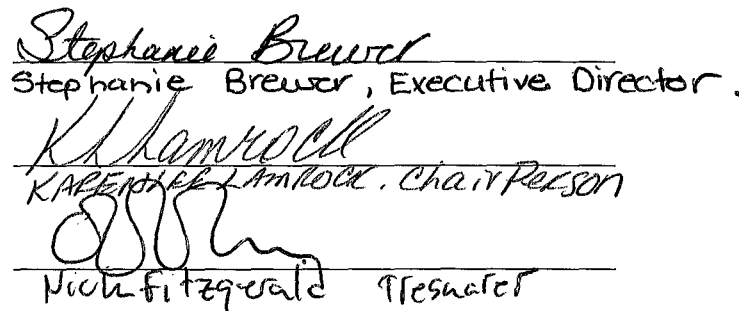 Stephanie Brewer
Stephanie Brewer, Executive Director.
KLLamrock
KAREN LEE LAMROCK. ChairPerson
Nick Fitzgerald Tresurer